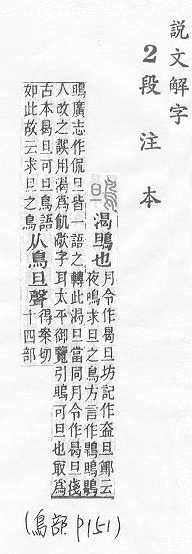 説文解字
2段注本
鴠
渴鴠也
月令作曷旦坊記作盍旦鄭云
夜鳴求旦之鳥方言作鶡鴠鶡
鴠廣志作侃旦皆一語之轉此渴旦當同月令作曷旦淺
人改之誤用渴爲飢㵣字耳太平御覽引鴠可旦也取爲
古本曷旦可旦鳥語
如此故云求旦之鳥
从鳥旦聲
得案切
十四部
(鳥部 P151)